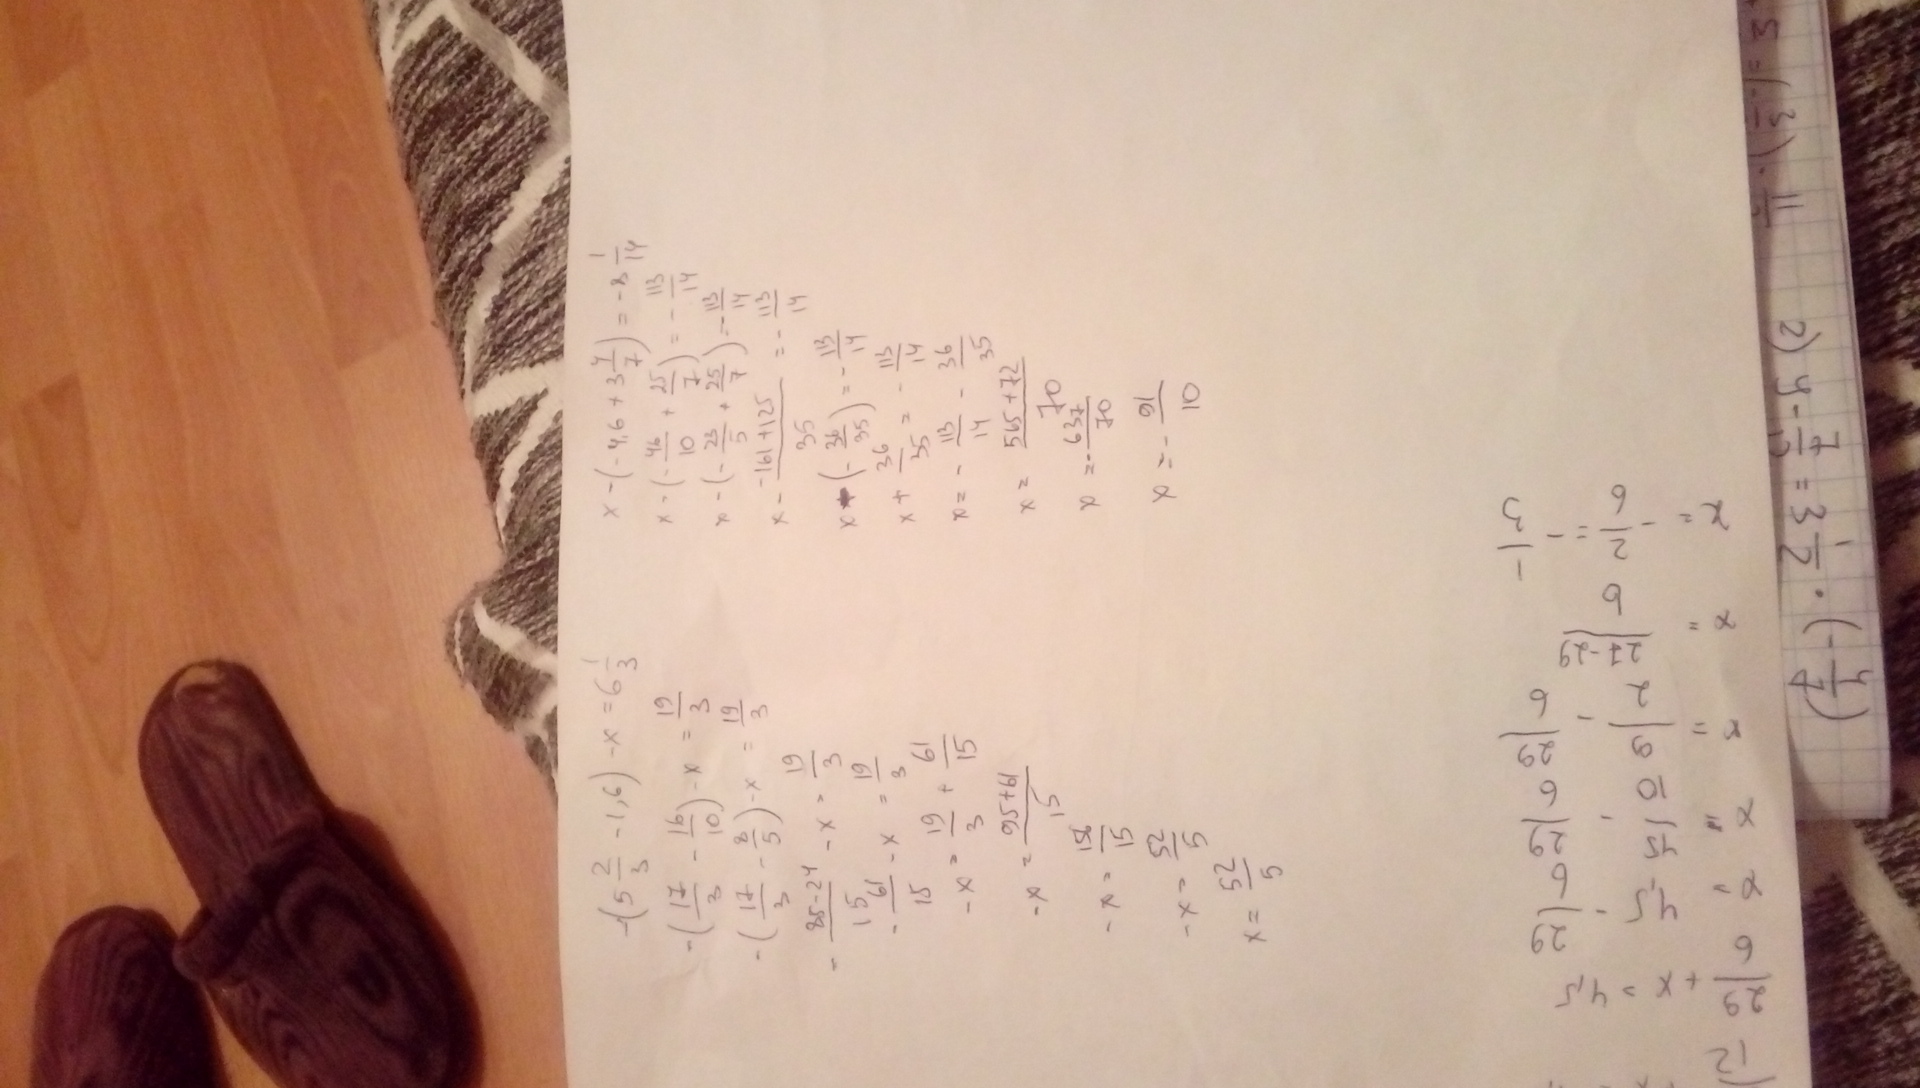 -(5 2/3 - 1,6) - x = 6 1/3
-(17/3 - 16/10) - x = 19/3
-(17/3 - 8/5) - x = 19/3
- 85-24/15 - x = 19/3
- 61/15 - x = 19/3
-x = 19/3 + 61/15
-x = 95+61/15
-x = 156/15
-x = 52/5
x = 52/5
x - (-4,6 + 3 4/7) = -8 1/14
x - (- 46/10 + 25/7) = - 113/14
x - (- 23/5 + 25/7) - 113/14
x - -161+125/35 = - 113/14
x (- 36/35) = - 113/14
x + 36/35 = - 113/14
x = - 113/14 - 36/35
x = 565+72/70
x = - 637/70
x = - 91/10
12
29/6 + x = 4,5
x = 4,5 - 29/6
x = 45/10 - 29/6
x = 9/2 - 29/6
x = 27-29/6
x = - 2/6 = - 1/3
= (- 3/) · 11/
2) y - 7/ = 3 1/2 · (- 4/7)